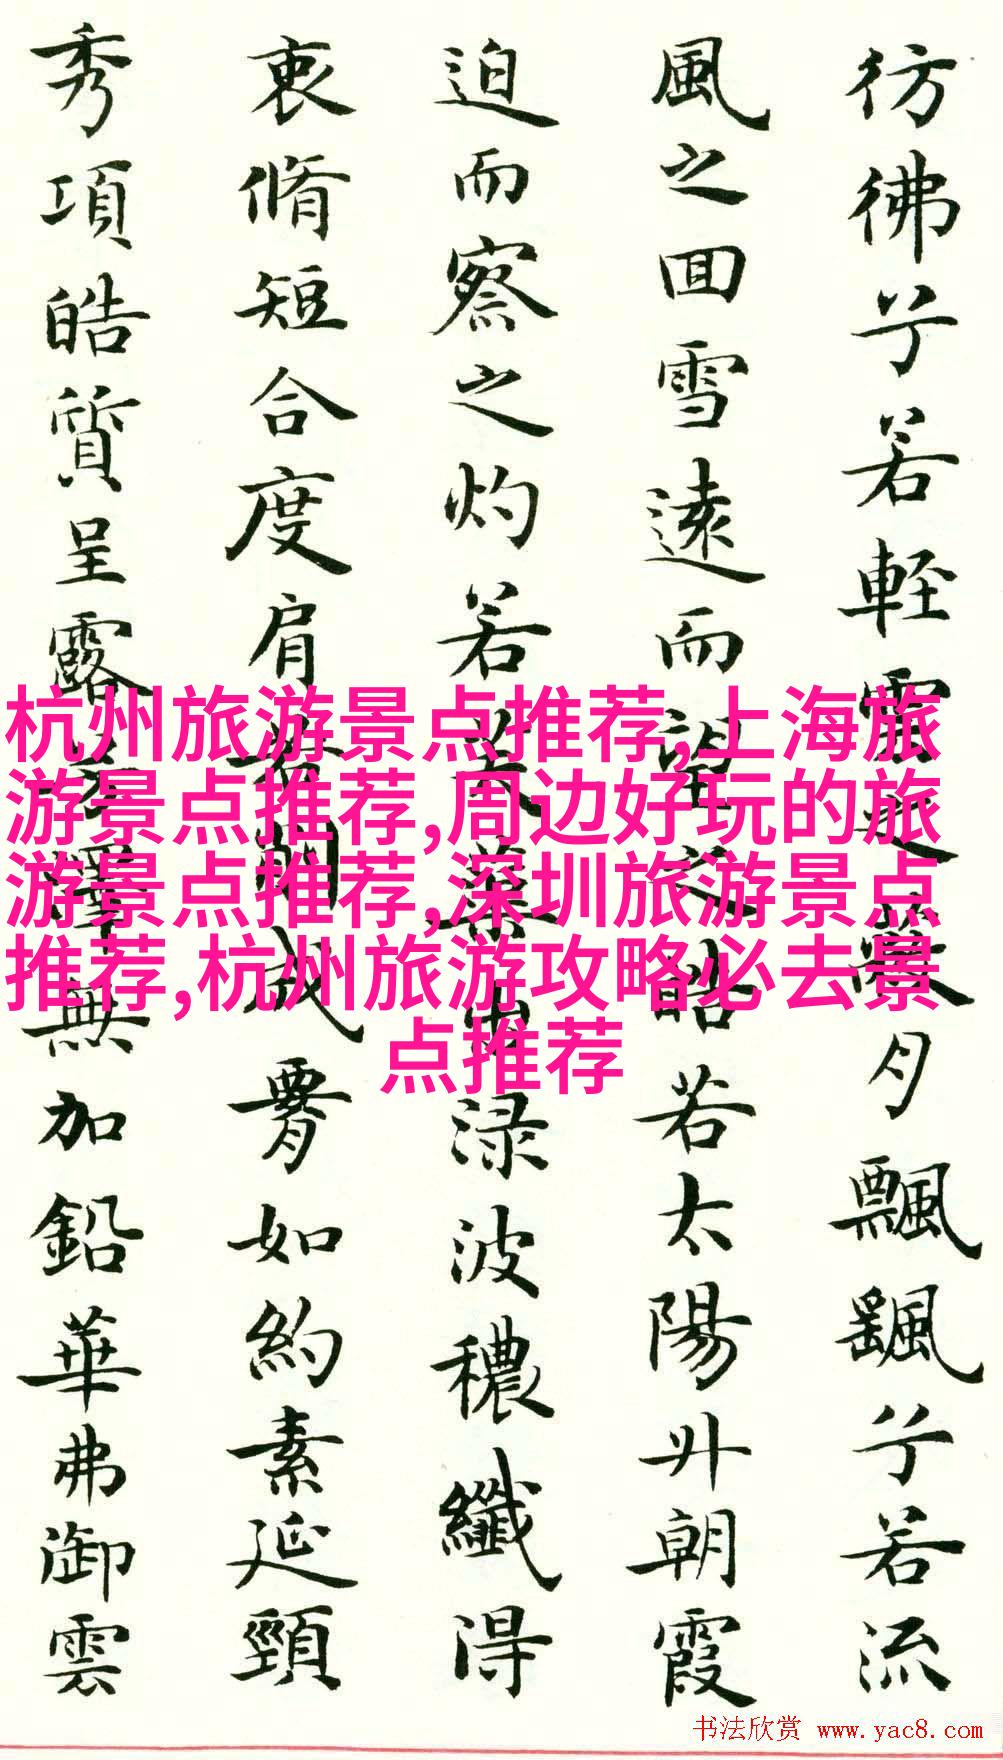 彷彿兮若輕雲之蔽月飄颻兮若流
風之回雪遠而望之皎若太陽升朝霞
迫而察之灼若芙蕖出淥波穠纖得
衷脩短合度肩若削成腰如約素延頸
秀項皓質呈露芳澤無加鉛華弗御雲
杭州旅游景点推荐,上海旅
游景点推荐,周边好玩的旅
游景点推荐,深圳旅游景点
推荐,杭州旅游攻略必去景
点推荐
书法欣赏 www.yac8.com